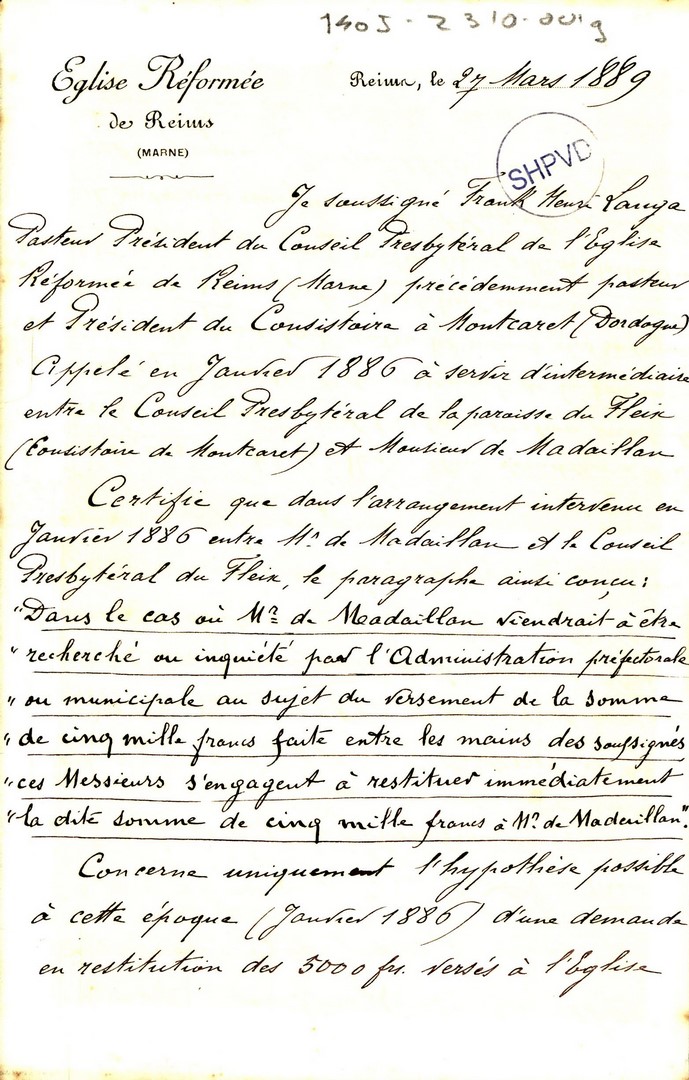 Eglise Réformée
de Reims
(MARNE)
Reims, le 27 Mars 1889
SHPVD
Je soussigné Frank Henri Lauga
Pasteur Président du Conseil Presbytéral de l'Eglise
Réformée de Reims (Marne) précédemment pasteur
et Président du Consistoire à Montcaret (Dordogne)
Appelé en Janvier 1886 à servir d'intermédiaire
entre le Conseil Presbytéral de la paroisse du Fleix
(Consistoire de Montcaret) et Monsieur de Madaillan
Certifie que dans l'arrangement intervenu en
Janvier 1886 entre Mr de Madaillan et le Conseil
Presbytéral du Fleix, le paragraphe ainsi conçu :
"Dans le cas où Mr de Madaillan viendrait à être
" recherché ou inquiété par l'Administration préfectorale
" ou municipale au sujet du versement de la somme
" de cinq mille francs faite entre les mains des soussignés
" ces Messieurs s'engagent à restituer immédiatement
" la dite somme de cinq mille francs à Mr de Madaillan".
Concerne uniquement l'hypothèse possible
à cette époque (Janvier 1886) d'une demande
en restitution des 5000 frs. versés à l'Eglise